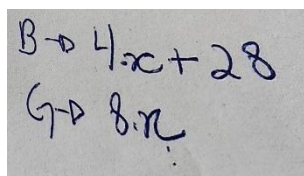 B→ 4.x + 28
G→ 8.x